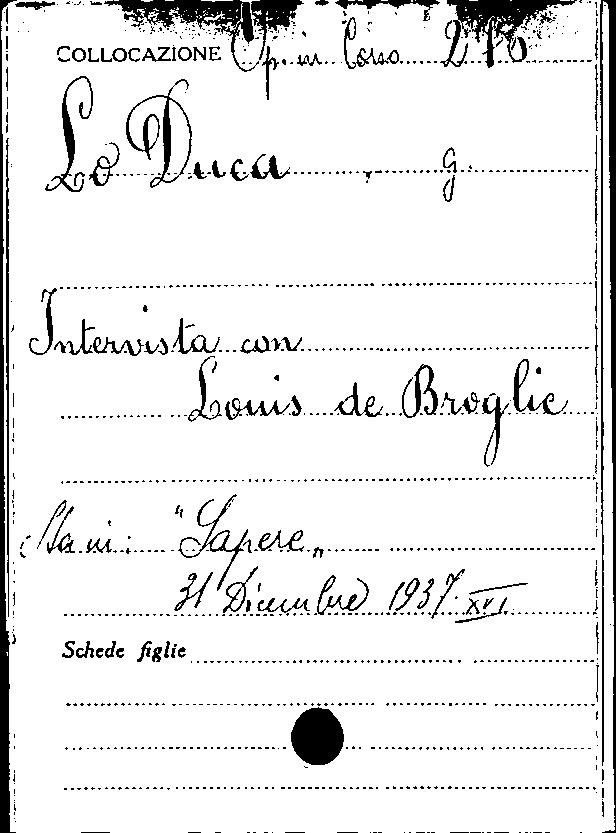 COLLOCAZIONE Op. in Corso 270
Lo Duca , G.
Intervista con
Louis de Broglie
Sta in: "Sapere„
31 Dicembre 1937. XVI
Schede figlie